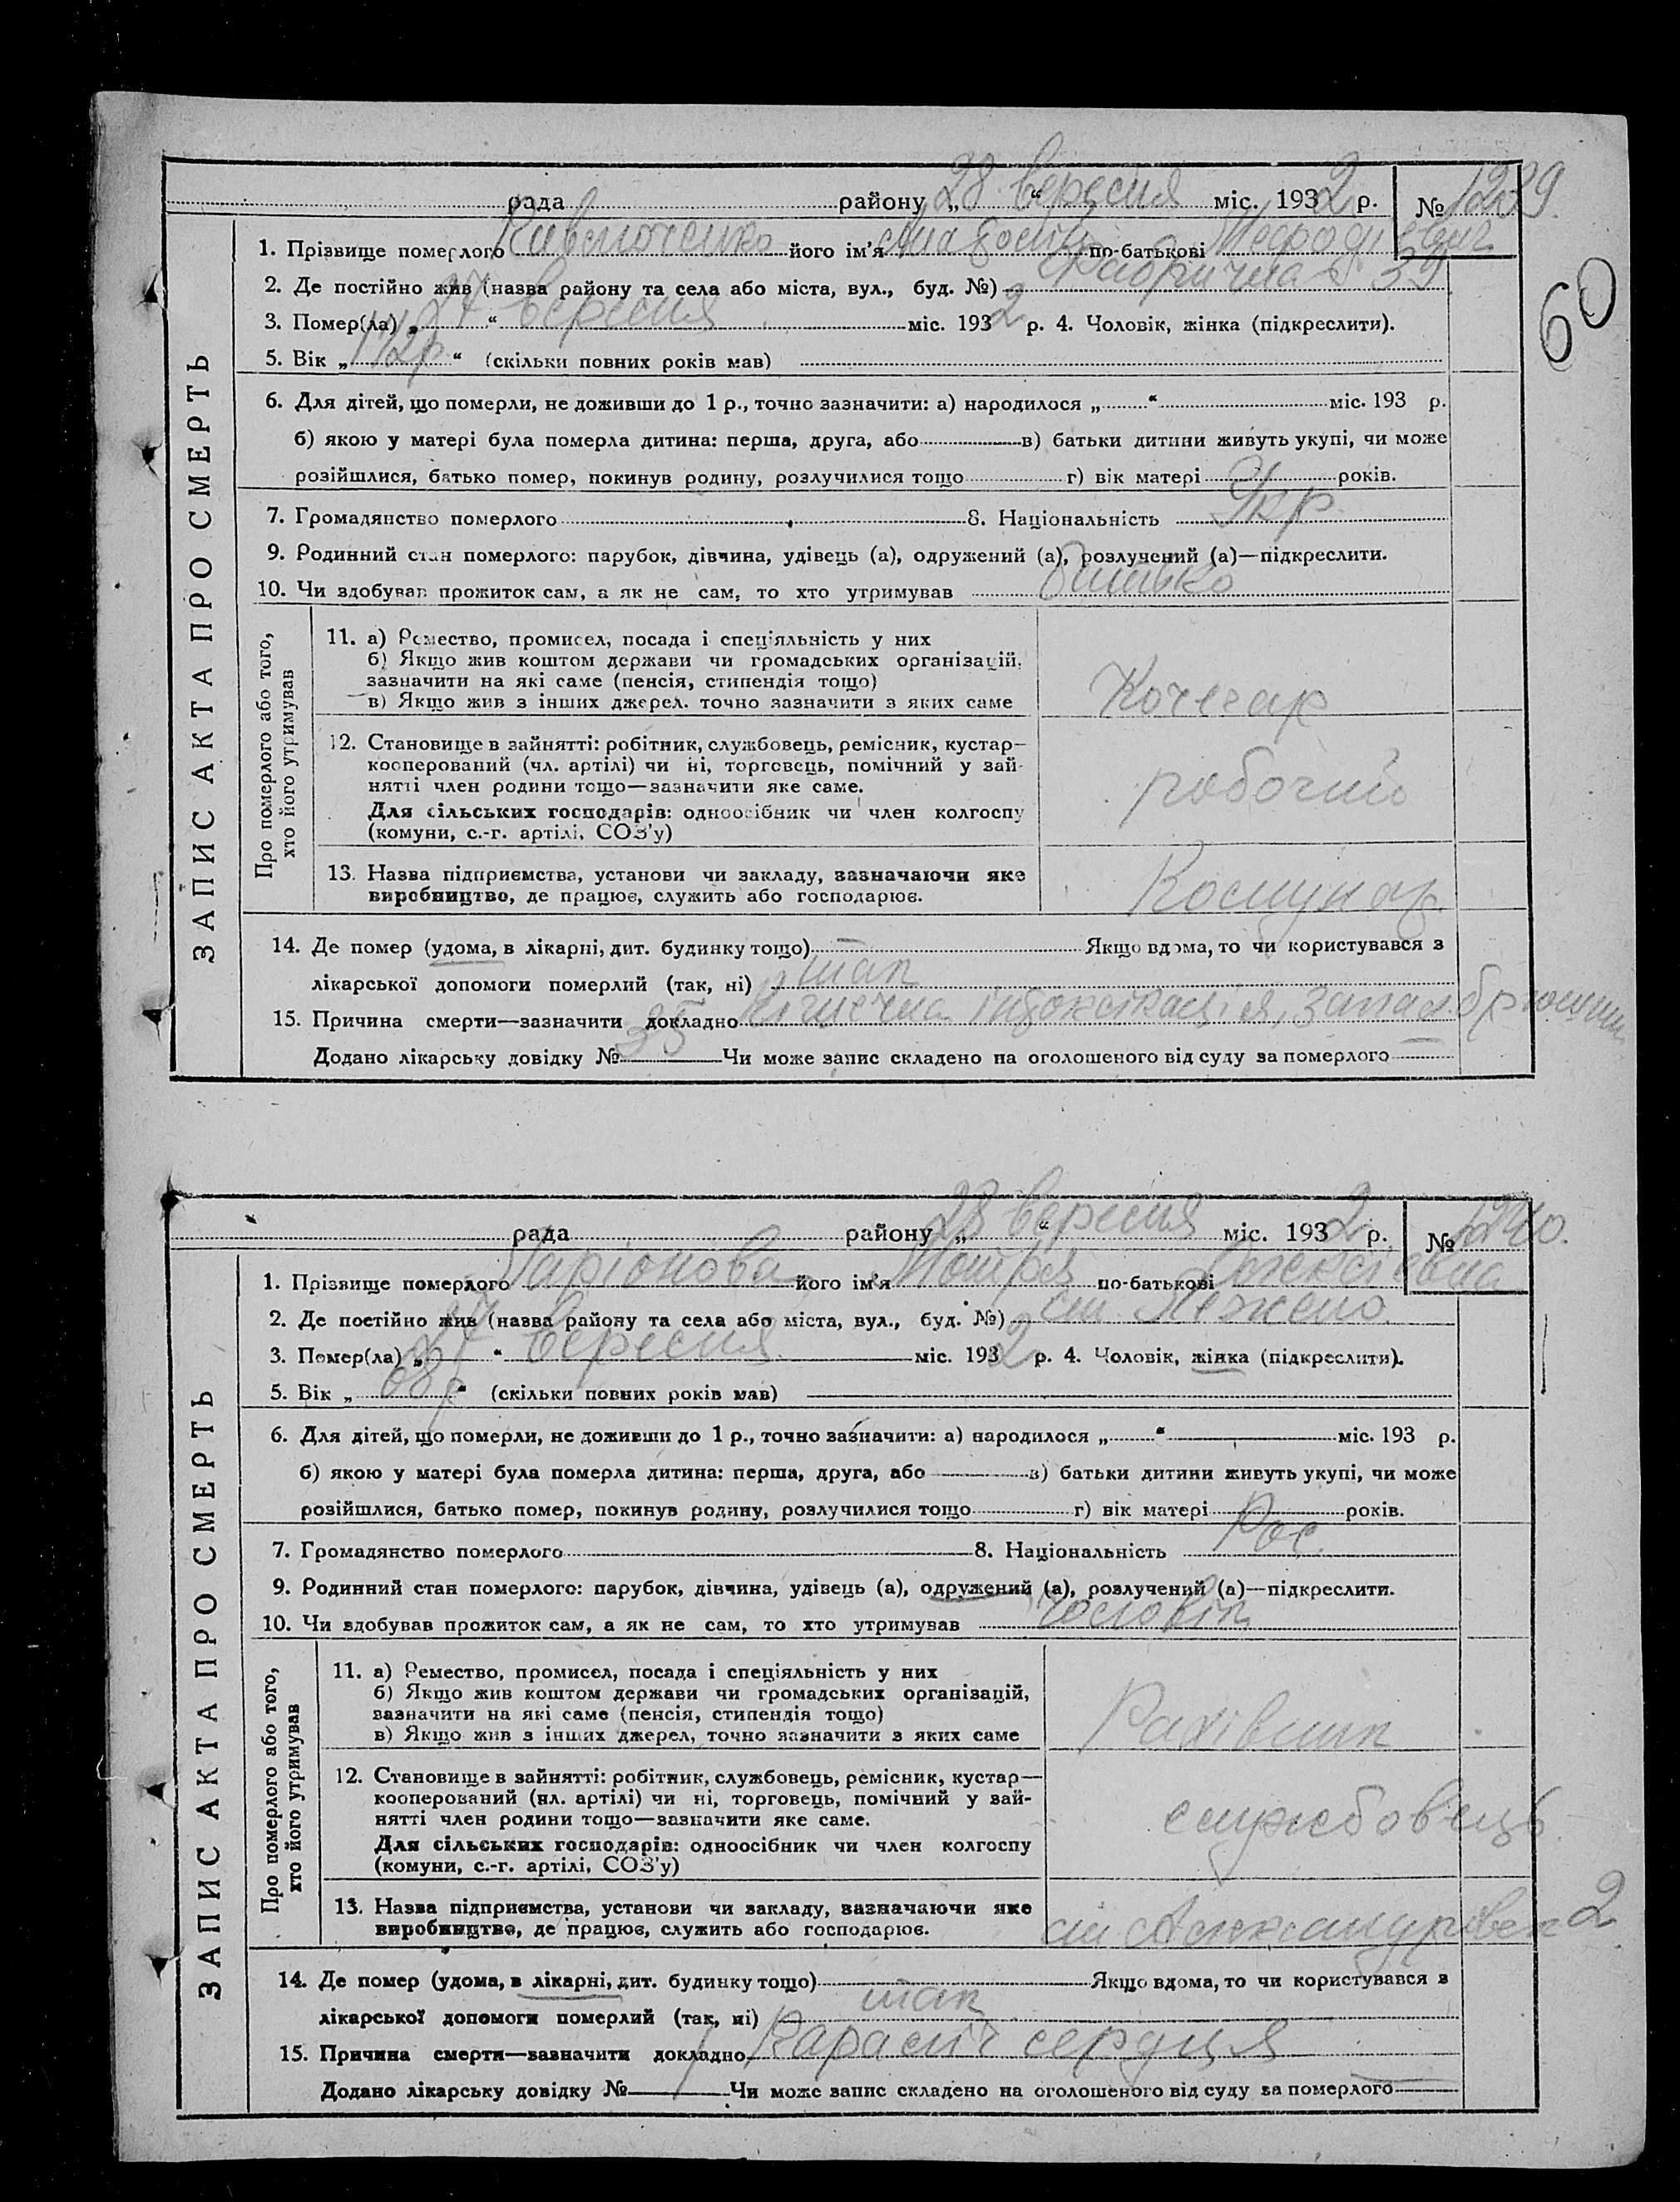 рада району „ 28 “ вересня міс. 1932 р. № 1239
60
1. Прізвище померлого його ім'я по-батькові
2. Де постійно жив (назва району та села або міста, вул., буд. №) Фабрична 39
3. Помер(ла) „ 27 “ вересня міс. 1932 р. 4. Чоловік, жінка (підкреслити).
5. Вік „ 1 1/2 р “ (скільки повних років мав)
6. Для дітей, що померли, не доживши до 1 р., точно зазначити: а) народилося „ “ міс. 193 р.
б) якою у матері була померла дитина: перша, друга, або в) батьки дитини живуть укупі, чи може
розійшлися, батько помер, покинув родину, розлучилися тощо г) вік матері років.
7. Громадянство померлого 8. Національність Укр.
9. Родинний стан померлого: парубок, дівчина, удівець (а), одружений (а), розлучений (а)—підкреслити.
10. Чи здобував прожиток сам, а як не сам, то хто утримував батько
ЗАПИС АКТА ПРО СМЕРТЬ
Про померлого або того,
хто його утримував
11. а) Ремество, промисел, посада і спеціяльність у них
б) Якщо жив коштом держави чи громадських організацій,
зазначити на які саме (пенсія, стипендія тощо)
в) Якщо жив з інших джерел. точно зазначити з яких саме
Кочегар
12. Становище в зайнятті: робітник, службовець, ремісник, кустар—
кооперований (чл. артілі) чи ні, торговець, помічний у зай-
нятті член родини тощо—зазначити яке саме.
Для сільських господарів: одноосібник чи член колгоспу
(комуни, с.-г. артілі, СОЗ'у)
робочий
13. Назва підприємства, установи чи закладу, зазначаючи яке
виробництво, де працює, служить або господарює.
14. Де помер (удома, в лікарні, дит. будинку тощо) — Якщо вдома, то чи користувався з
лікарської допомоги померлий (так, ні) так
15. Причина смерти—зазначити докладно інтоксікація, запал.
Додано лікарську довідку № 35 Чи може запис складено на оголошеного від суду за померлого —
рада району „ 28 “ вересня міс. 1932 р. № 1240.
1. Прізвище померлого Ларіонова його ім'я Мотря по-батькові Олексіевна
2. Де постійно жив (назва району та села або міста, вул., буд. №) ст.
3. Помер(ла) „ 27 “ вересня міс. 1932 р. 4. Чоловік, жінка (підкреслити).
5. Вік „ 68 р “ (скільки повних років мав)
6. Для дітей, що померли, не доживши до 1 р., точно зазначити: а) народилося „ “ міс. 193 р.
б) якою у матері була померла дитина: перша, друга, або в) батьки дитини живуть укупі, чи може
розійшлися, батько помер, покинув родину, розлучилися тощо г) вік матері років.
7. Громадянство померлого 8. Національність Рос.
9. Родинний стан померлого: парубок, дівчина, удівець (а), одружений (а), розлучений (а)—підкреслити.
10. Чи здобував прожиток сам, а як не сам, то хто утримував чоловік
ЗАПИС АКТА ПРО СМЕРТЬ
Про померлого або того,
хто його утримував
11. а) Ремество, промисел, посада і спеціяльність у них
б) Якщо жив коштом держави чи громадських організацій,
зазначити на які саме (пенсія, стипендія тощо)
в) Якщо жив з інших джерел, точно зазначити з яких саме
Рахівник
12. Становище в зайнятті: робітник, службовець, ремісник, кустар—
кооперований (чл. артілі) чи ні, торговець, помічний у зай-
нятті член родини тощо—зазначити яке саме.
Для сільських господарів: одноосібник чи член колгоспу
(комуни, с.-г. артілі, СОЗ'у)
службовець
13. Назва підприємства, установи чи закладу, зазначаючи яке
виробництво, де працює, служить або господарює.
2
14. Де помер (удома, в лікарні, дит. будинку тощо) Якщо вдома, то чи користувався з
лікарської допомоги померлий (так, ні) так
15. Причина смерти—зазначити докладно сердця
Додано лікарську довідку № Чи може запис складено на оголошеного від суду за померлого —